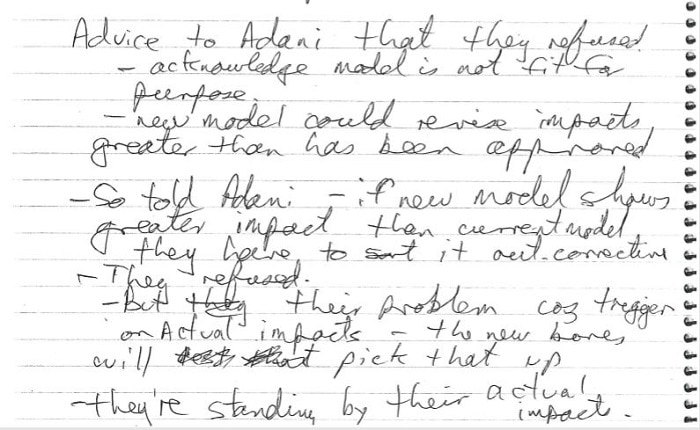 Advice to Adani that they refused.
- acknowledge model is not fit for
purpose.
- new model could revise impacts
greater than has been approved
- So told Adani - if new model shows
greater impact than current model
they have to sort it out - corrective
- They refused.
- But they their problem coz trigger
on Actual impacts - the new bores
will pick that up
- they're standing by their actual
impacts.